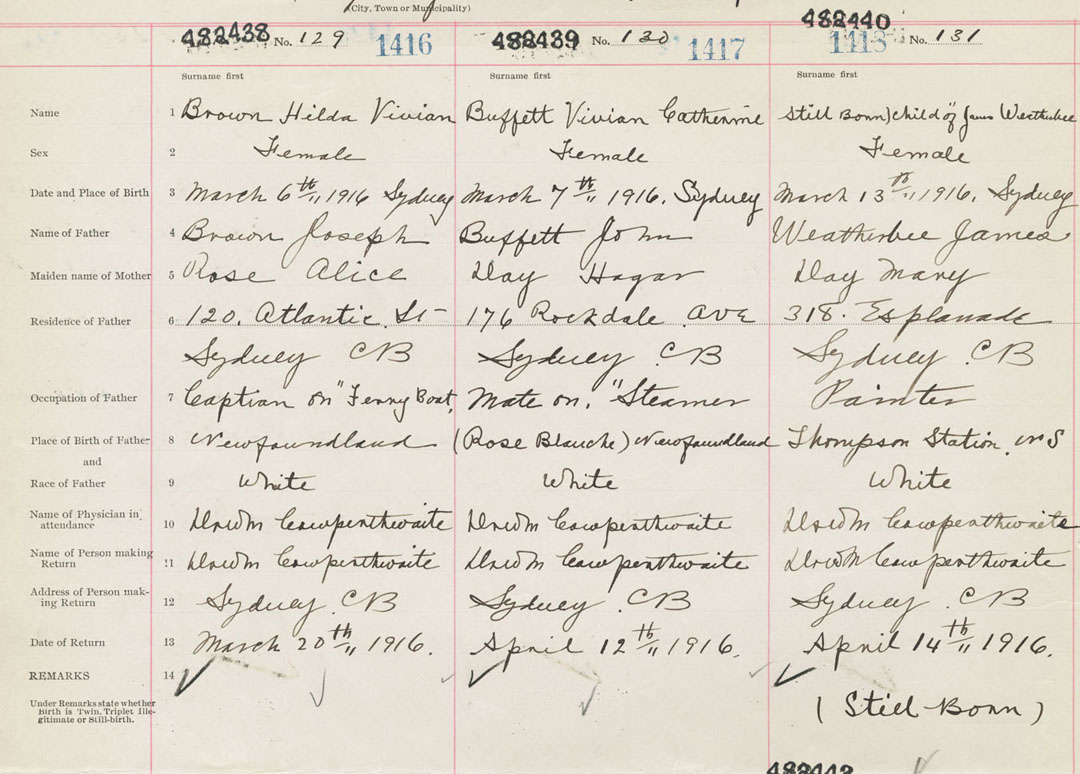 (City, Town or Municipality)
482438 No. 129 1416 482439 No. 130 1417 482440 1418 No. 131
Surname first Surname first Surname first
Name 1 Brown Hilda Vivian Buffett Vivian Catherine Still Bonn) child of James Weatherbee
Sex 2 Female Female Female
Date and Place of Birth 3 March 6th,, 1916 Sydney March 7th,, 1916. Sydney March 13th,, 1916. Sydney
Name of Father 4 Brown Joseph Buffett John Weatherbee James
Maiden name of Mother 5 Rose Alice Day Hagar Day Mary
Residence of Father 6 120. Atlantic. St 176 Rockdale Ave 318. Esplanade
Sydney CB Sydney. CB Sydney. CB
Occupation of Father 7 Captian on "Ferry Boat, Mate on. "Steamer Painter
Place of Birth of Father 8 Newfoundland (Rose Blanche) Newfoundland Thompson Station. NS
and
Race of Father 9 White White White
Name of Physician in
attendance 10 Cowpenthwaite Cowpenthwaite Cowpenthwaite
Name of Person making
Return 11 Cowpenthwaite Cowpenthwaite Cowpenthwaite
Address of Person mak-
ing Return 12 Sydney. CB Sydney. CB Sydney. CB
Date of Return 13 March 20th,, 1916. April 12th,, 1916. April 14th,, 1916.
REMARKS 14
Under Remarks state whether
Birth is Twin, Triplet Ille-
gitimate or Still-birth.
(Still-Bonn)